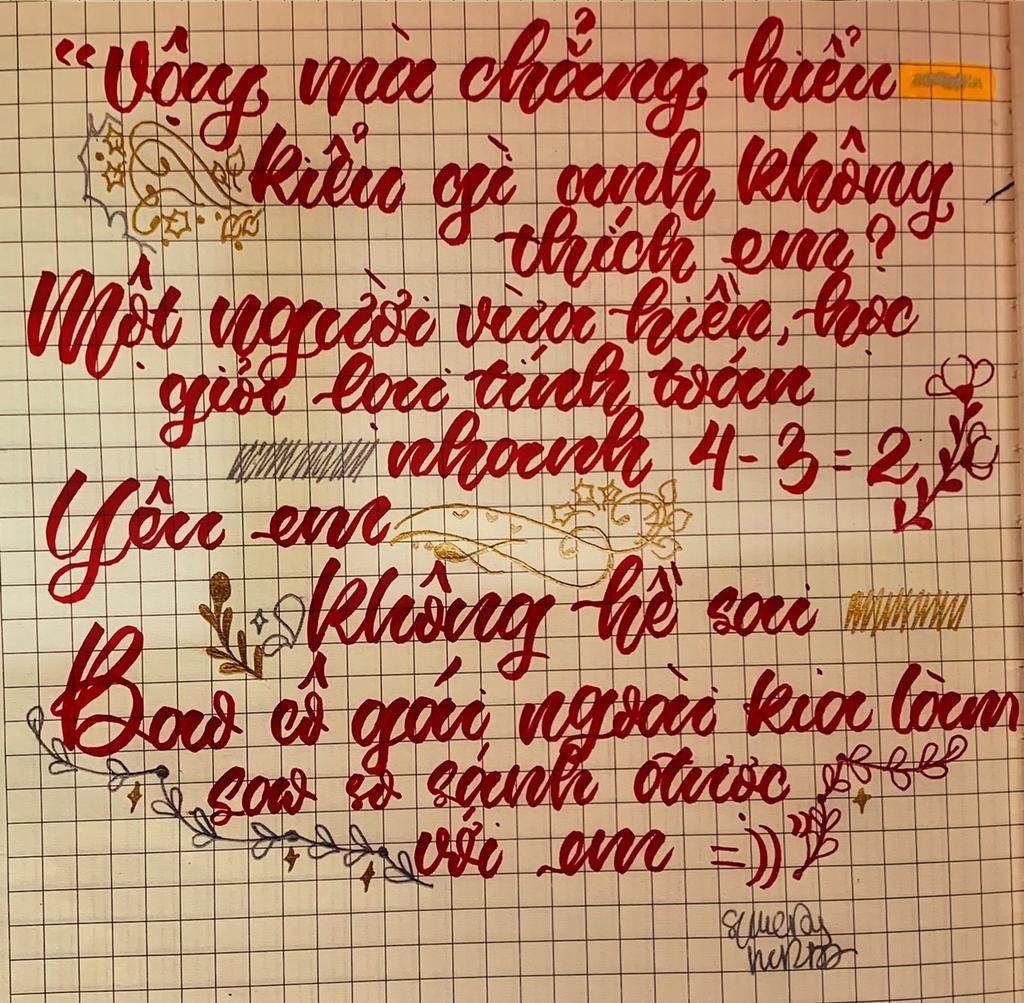 “Vậy mà chẳng hiểu
kiểu gì anh không
thích em?
Một người vừa hiền, học
giỏi lại tính toán
nhanh 4 - 3 = 2
Yêu em
không hề sai
Bao cô gái ngoài kia làm
sao so sánh được
với em =))”